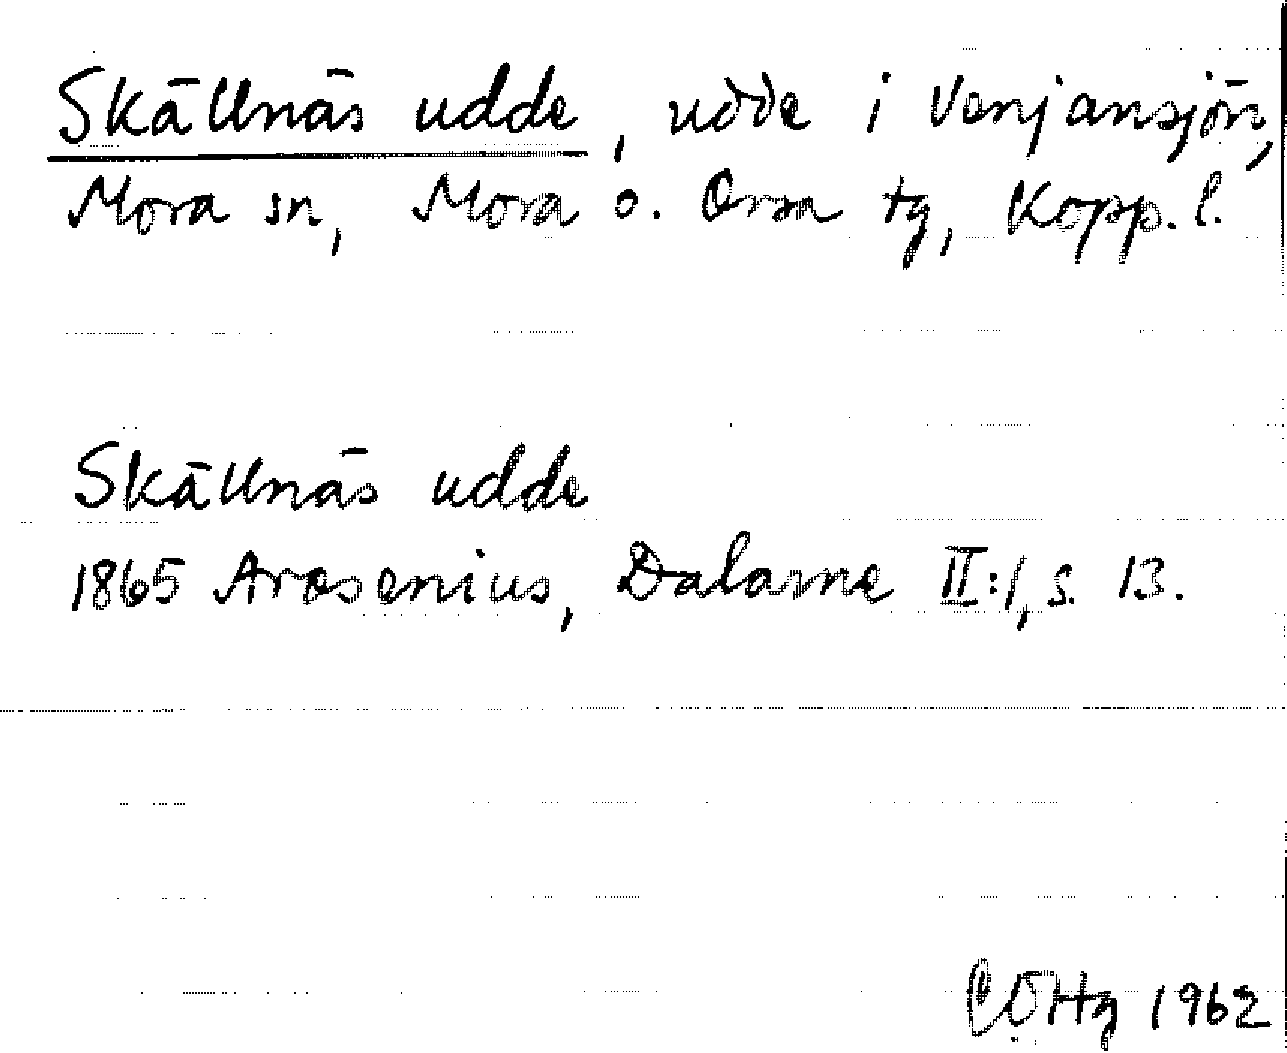 Skällnäs udde, udde i Venjansjön,
Mora sn, Mora o. Orsa tg, Kopp. l.
Skällnäs udde
1865 Arosenius, Dalarne II:1, s. 13.
1962